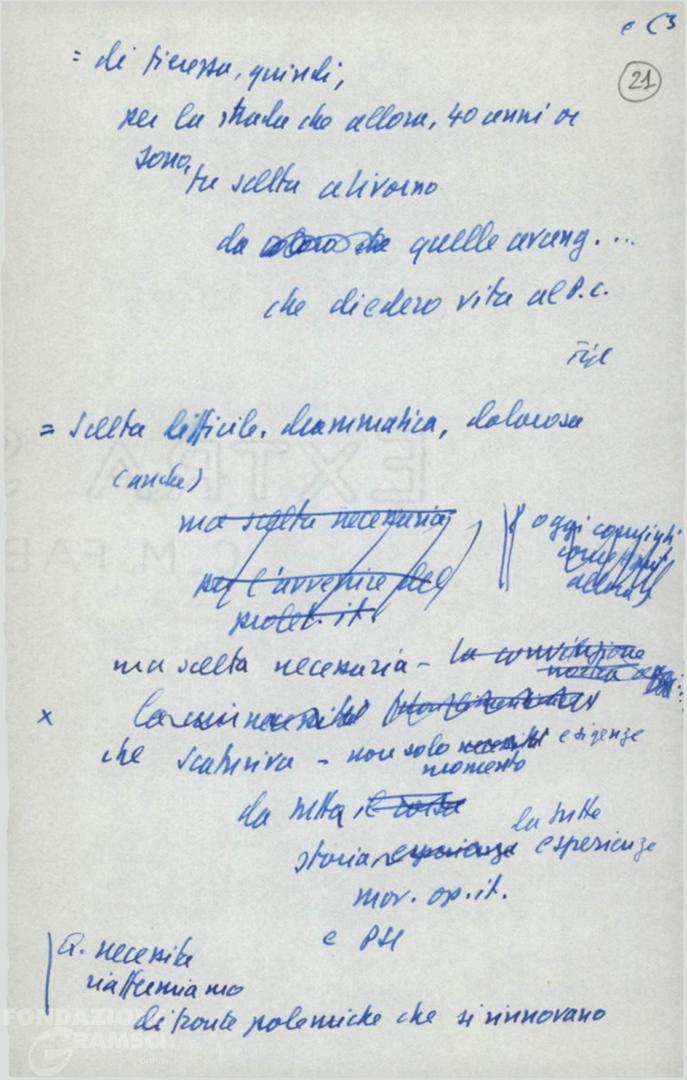 e C3
21
= di fierezza, quindi,
per la strada che allora, 40 anni or
sono,
fu scelta a Livorno
da coloro che quelle avang. ...
che diedero vita al P.C.
= scelta difficile, drammatica, dolorosa
(anche)
ma scelta necessaria
per l'avvenire del
prolet. it.
oggi convinti
come
allora
ma scelta necessaria - la convinzione
nostra
x
la cui necessità
che scaturiva - non solo necessità esigenze
momento
da tutta il corso
storia, esperienze da tutte esperienze
mov. op. it.
e PSI
Q. necessità
riaffermiamo
di fronte polemiche che si rinnovano
FONDAZIONE
GRAMSCI
EXTRA